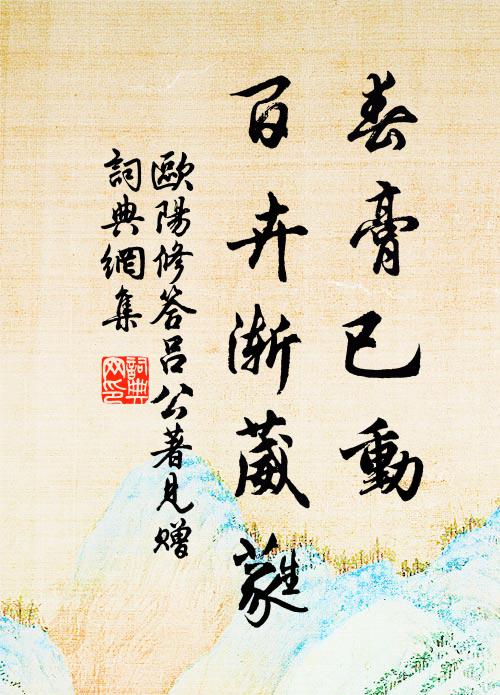 春膏已動
百卉漸葳蕤
歐陽修答呂公著見贈
詞典網集
詞典
网印